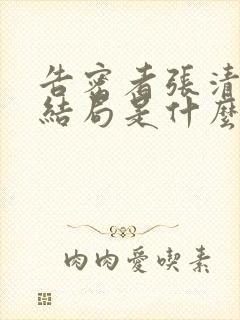 告密者張清
結局是什麼
肉肉愛喫素